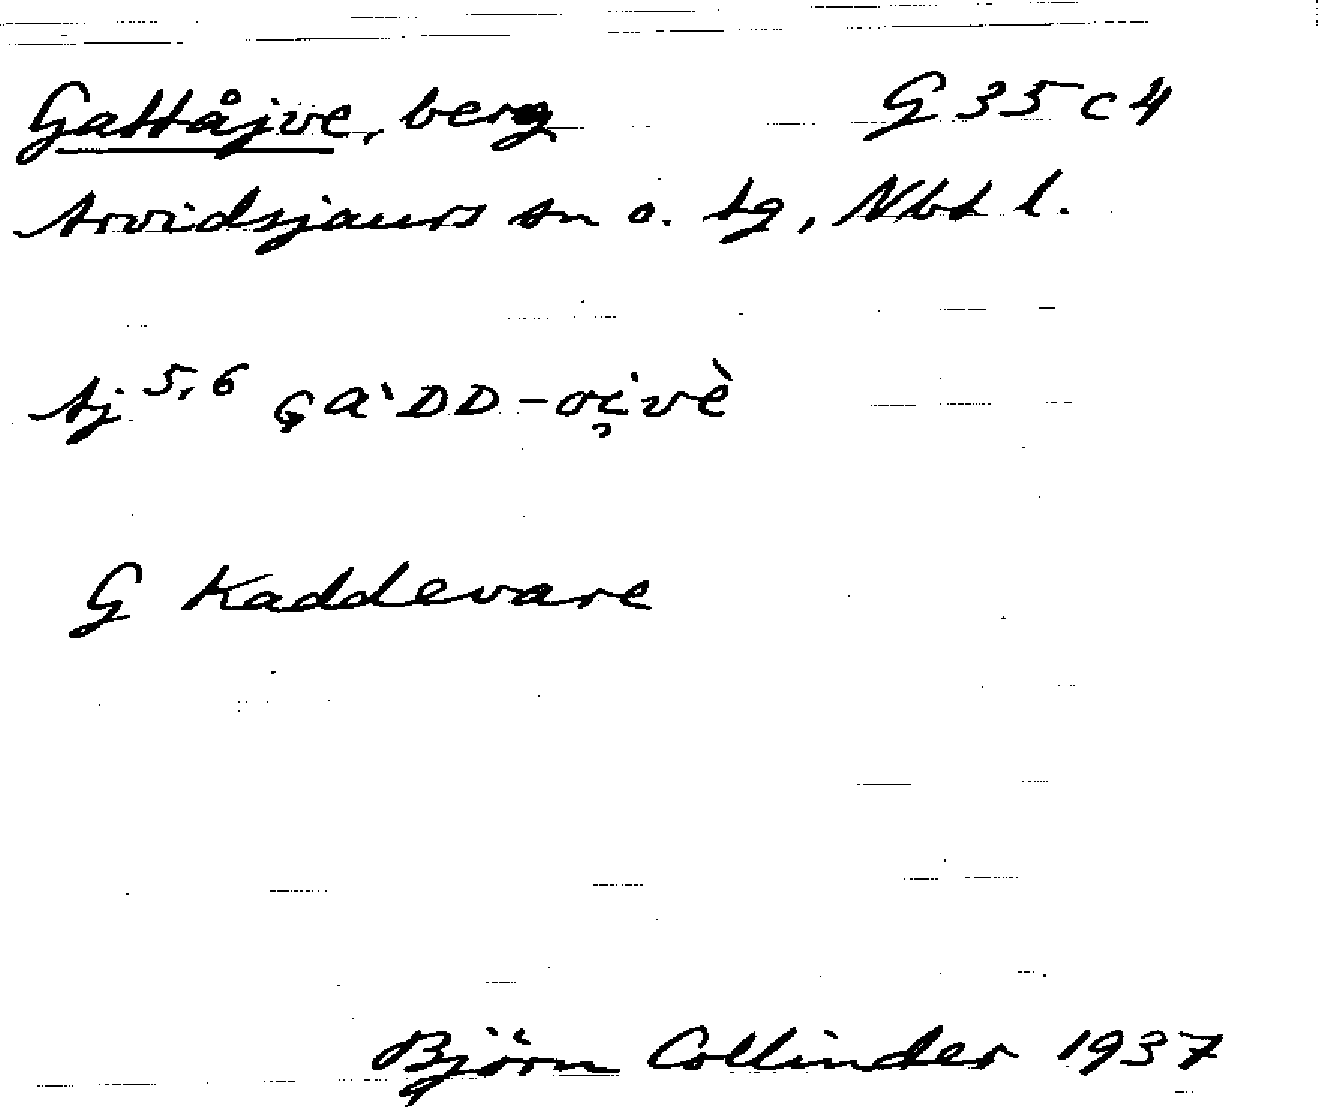 Gattåjve, berg G 35 c 4
Arvidsjaurs sn o. tg, Nbt l.
Aj 5, 6 GA`DD-oi̮vè
G Kaddevare
Björn Collinder 1937